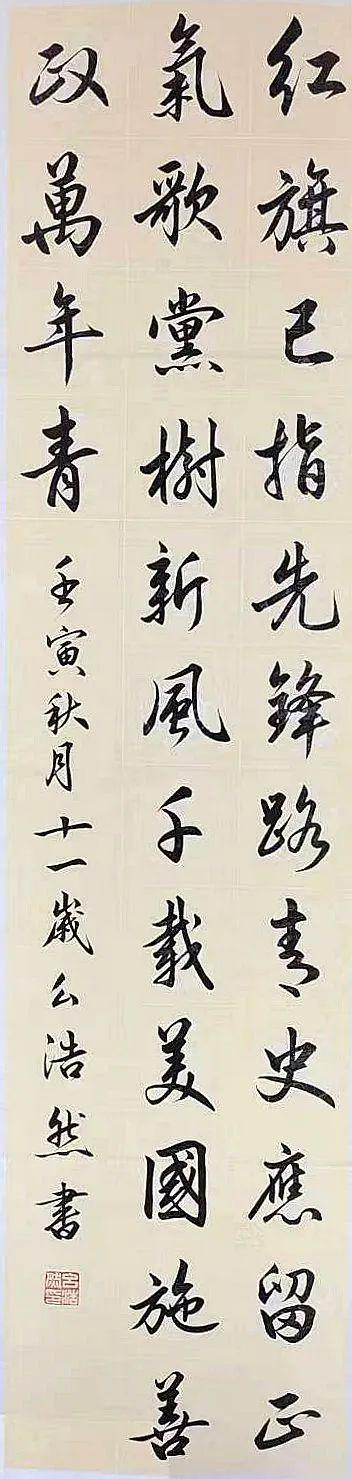 红旗已指先鋒路青史應留正
氣歌黨樹新風千載美國施善
政萬年青
壬寅秋月十一歲么浩然書